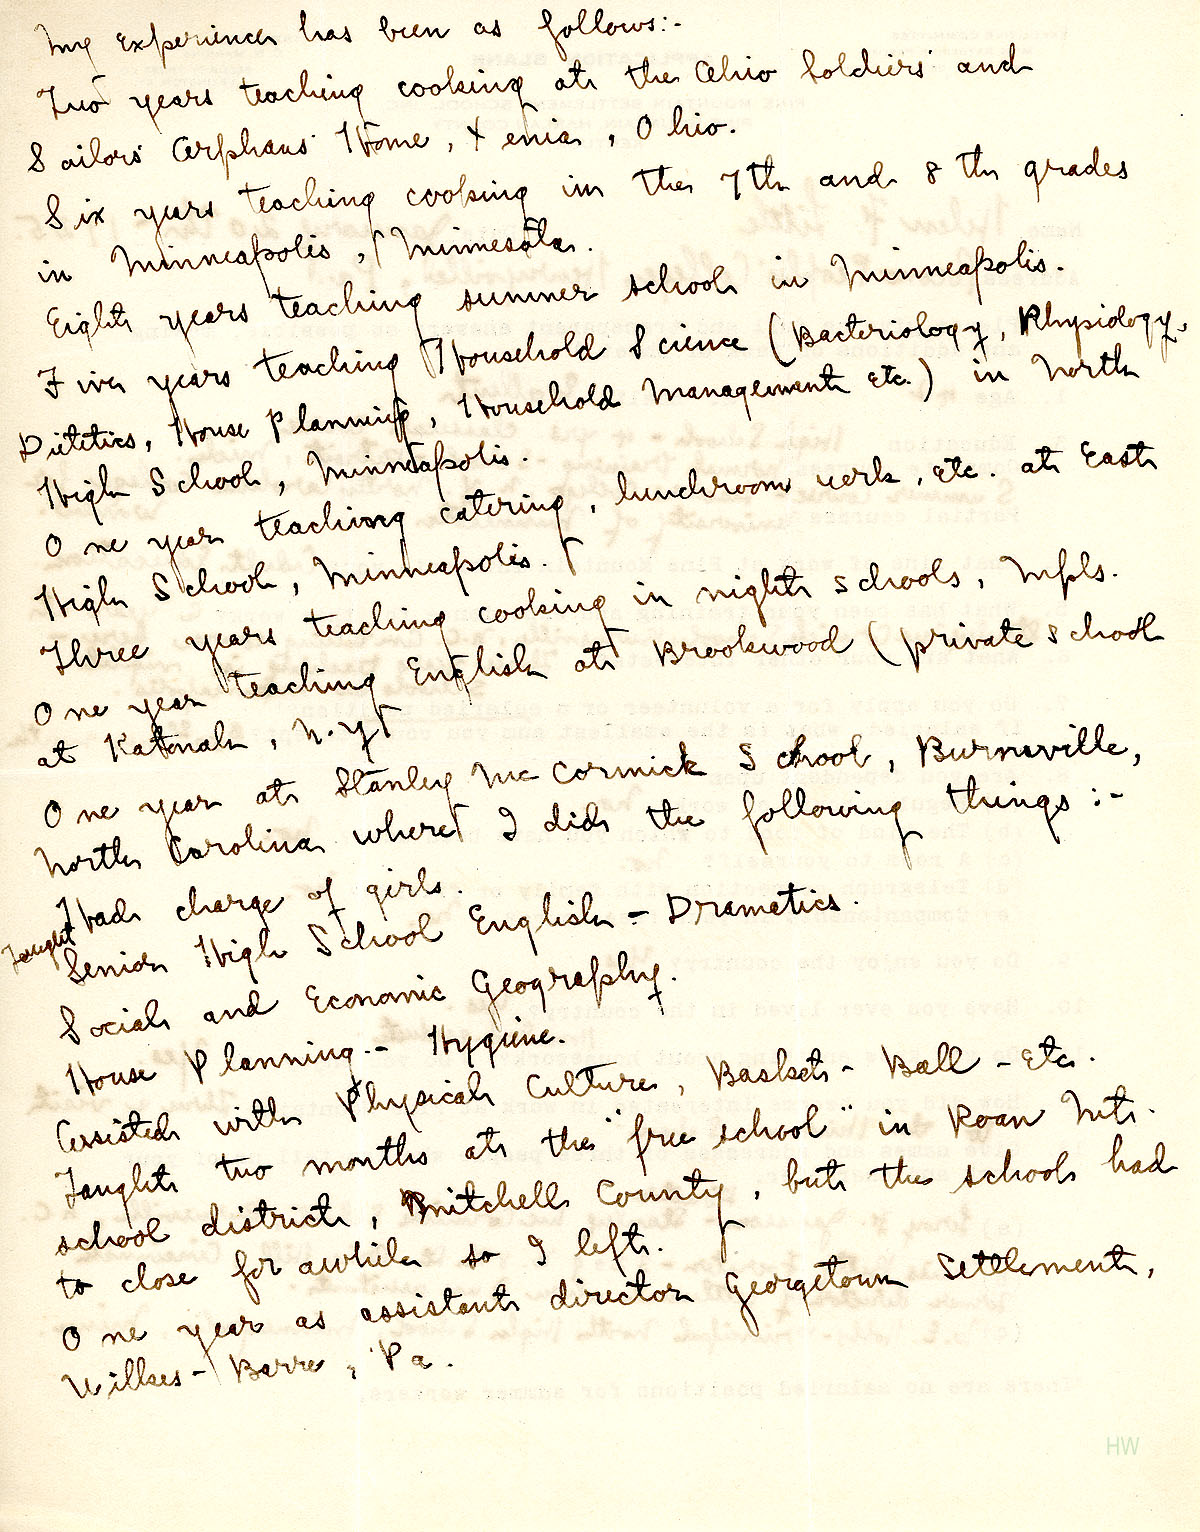 My experience has been as follows:-
Two years teaching cooking at the Ohio Soldiers' and
Sailors' Orphans' Home, Xenia, Ohio.
Six years teaching cooking in the 7th and 8th grades
in Minneapolis, Minnesota.
Eight years teaching summer school in Minneapolis.
Five years teaching Household Science (Bacteriology, Physiology,
Dietetics, House Planning, Household Management etc.) in North
High School, Minneapolis.
One year teaching catering, lunchroom work, etc. at East
High School, Minneapolis.
Three years teaching cooking in night schools, Mpls.
One year teaching English at Brookwood (private school
at Katonah, N.Y)
One year at Stanley McCormick School, Burnsville,
North Carolina where I did the following things:-
Had charge of girls.
Taught Senior High School English - Dramatics.
Social and Economic Geography.
House Planning - Hygiene.
Assisted with Physical Culture, Basket-Ball - Etc.
Taught two months at the "free school" in Roan Mt.
school district, Mitchell County, but the school had
to close for awhile so I left.
One year as assistant director Georgetown Settlement,
Wilkes-Barre, Pa.
HW